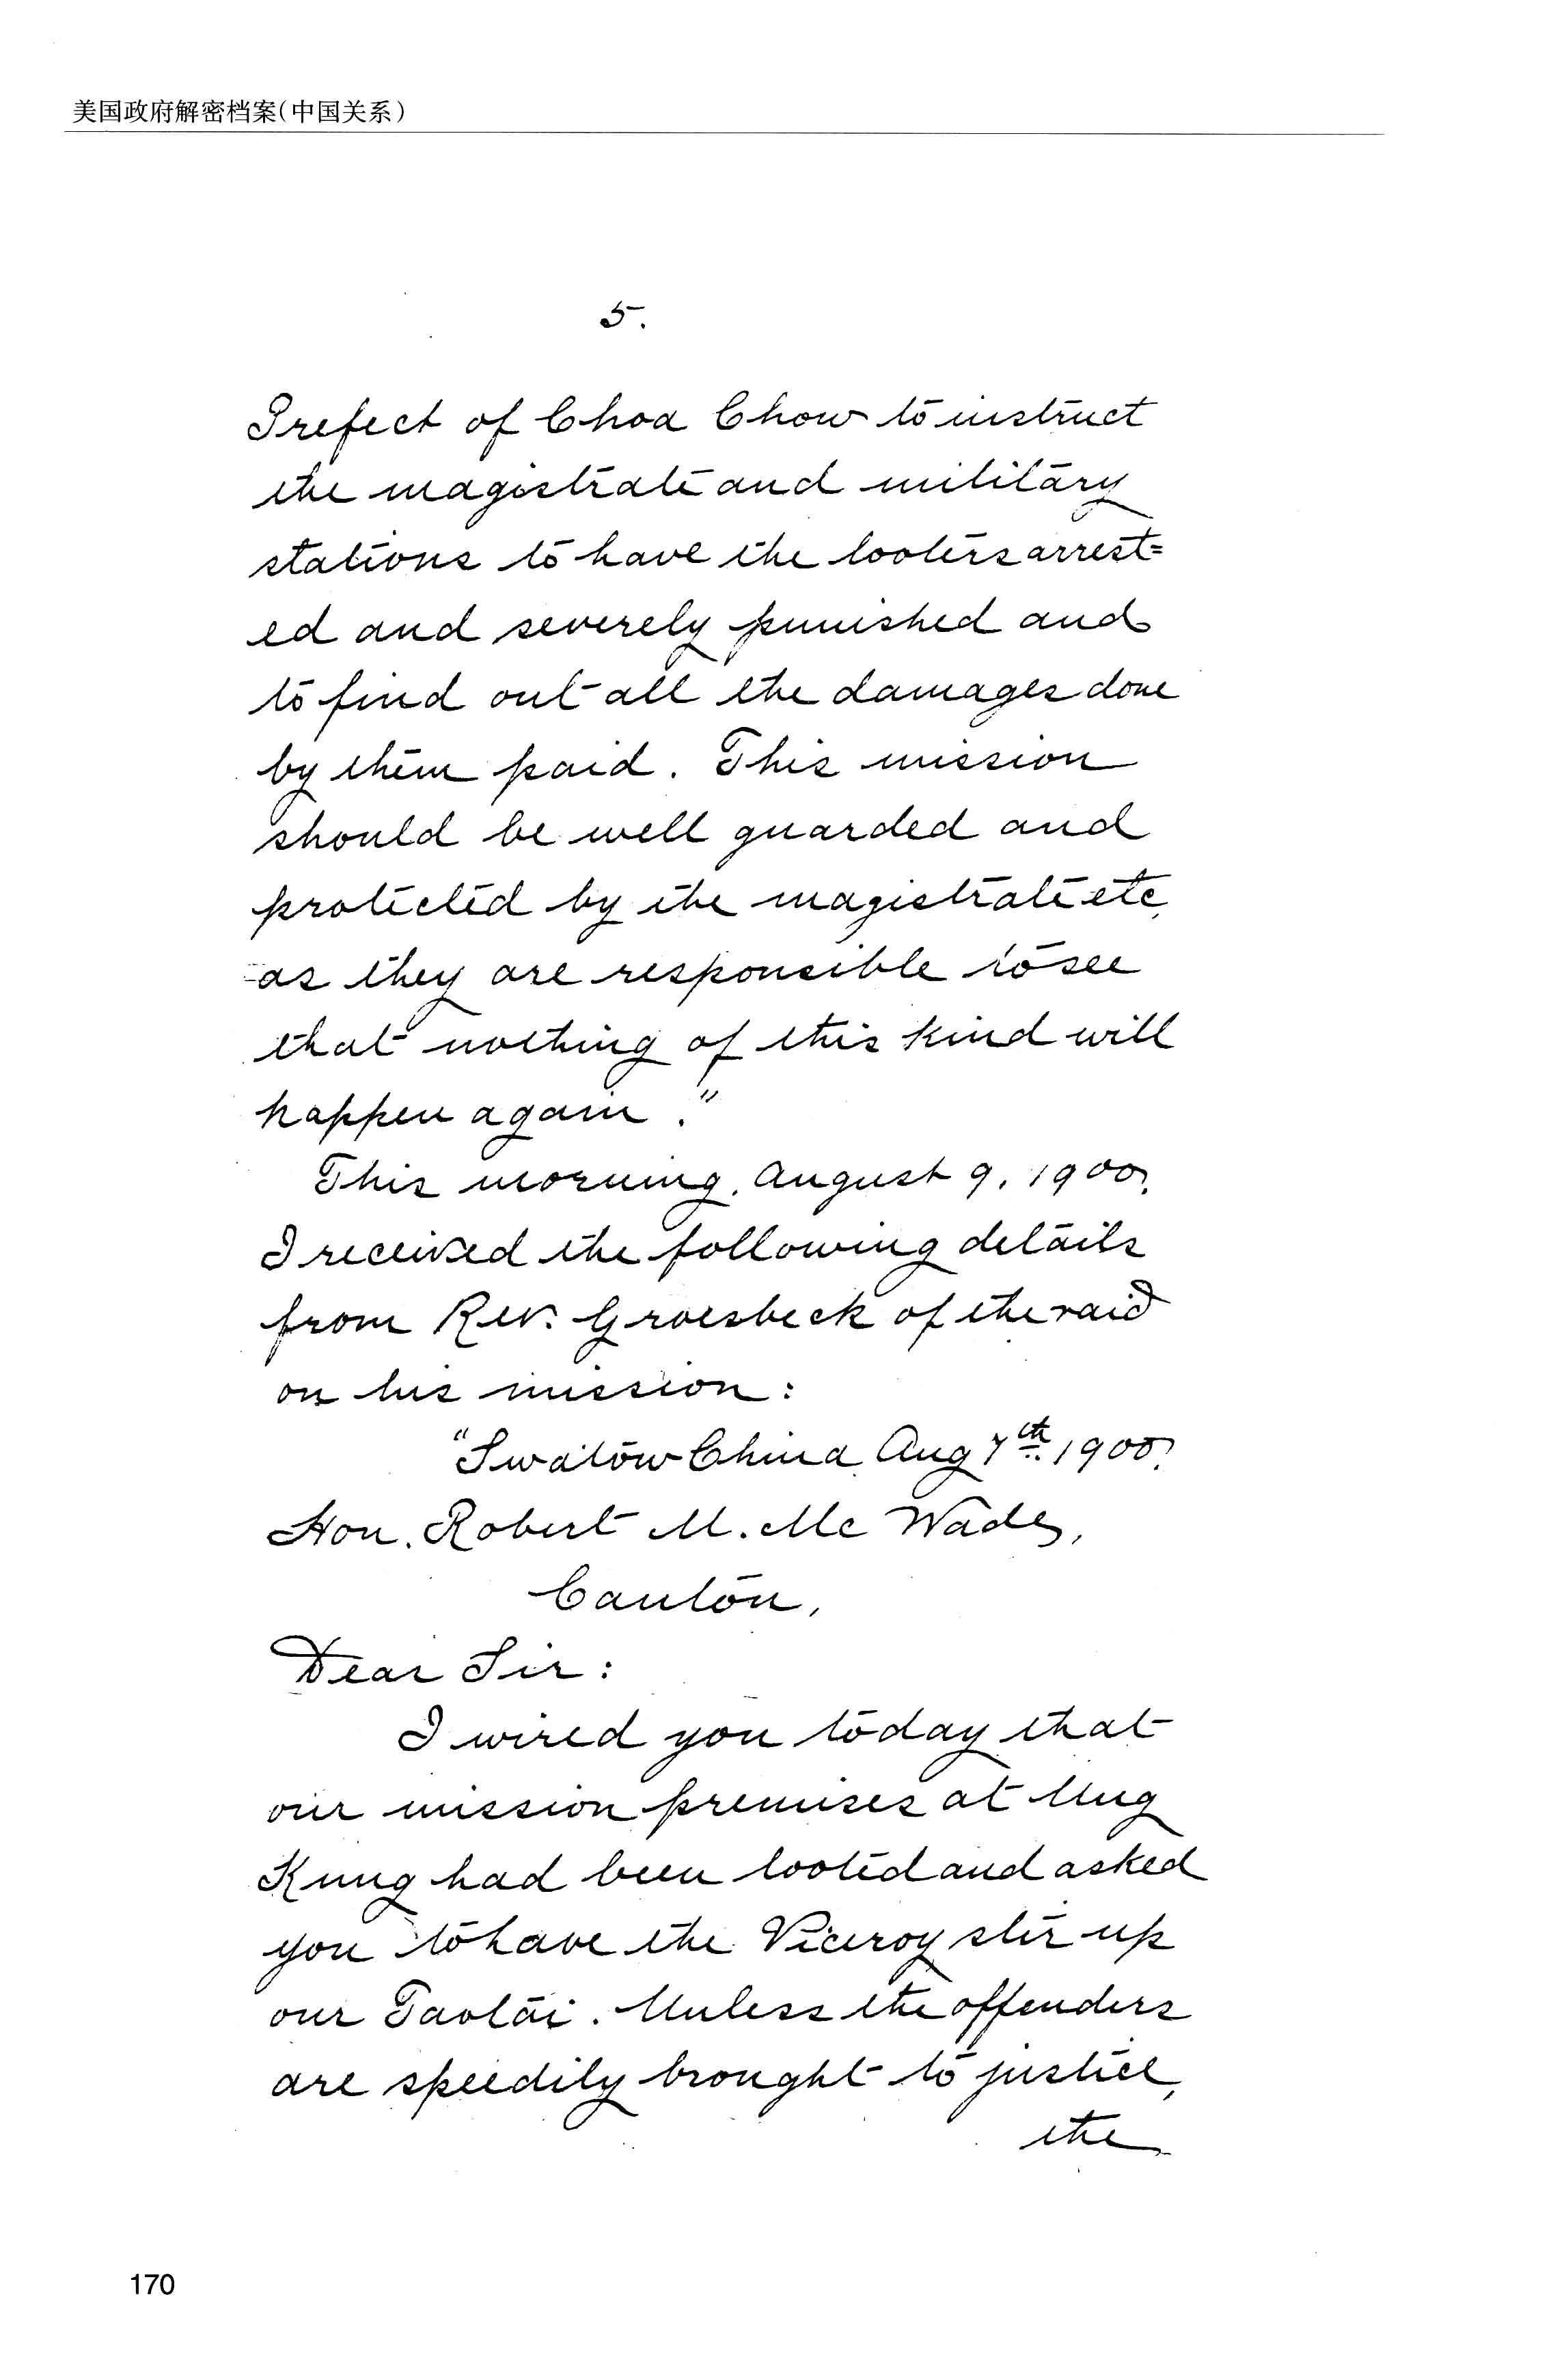 美国政府解密档案(中国关系)
5.
Prefect of Choa Chow to instruct
the magistrate and military
stations to have the looters arrest=
ed and severely punished and
to find out all the damages done
by them paid. This mission
should be well guarded and
protected by the magistrate etc,
as they are responsible to see
that nothing of this kind will
happen again."
This morning, August 9, 1900,
I received the following details
from Rev. Groesbeck of the raid
on his mission:
"Swatow China Aug 7th 1900.
Hon. Robert M. McWade,
Canton,
Dear Sir:
I wired you today that
our mission premises at Ung
Kung had been looted and asked
you to have the Viceroy stir up
our Taotai. Unless the offenders
are speedily brought to justice,
the
170